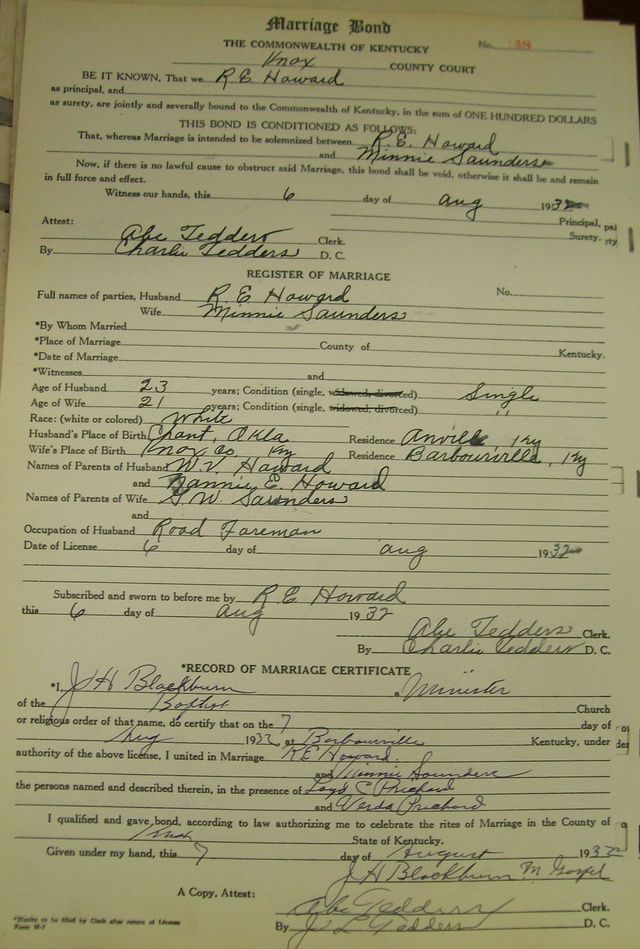 Marriage Bond
THE COMMONWEALTH OF KENTUCKY
No. 48
Knox COUNTY COURT
BE IT KNOWN, That we R E Howard
as principal, and
as surety, are jointly and severally bound to the Commonwealth of Kentucky, in the sum of ONE HUNDRED DOLLARS
THIS BOND IS CONDITIONED AS FOLLOWS:
That, whereas Marriage is intended to be solemnized between R. E. Howard
and Minnie Saunders
Now, if there is no lawful cause to obstruct said Marriage, this bond shall be void, otherwise it shall be and remain
in full force and effect.
Witness our hands, this 6 day of aug 1932
Principal, pal
Surety. ty
Attest:
Abe Tedders Clerk.
By Charlie Tedders D. C.
REGISTER OF MARRIAGE
Full names of parties, Husband R. E Howard No.
Wife Minnie Saunders
*By Whom Married
*Place of Marriage County of Kentucky.
*Date of Marriage
*Witnesses and
Age of Husband 23 years; Condition (single, widowed, divorced) Single
Age of Wife 21 years; Condition (single, widowed, divorced) "
Race: (white or colored) White
Husband's Place of Birth Chant, Okla Residence Anville, Ky
Wife's Place of Birth Knox Co, Ky Residence Barbourville, Ky
Names of Parents of Husband W. V. Howard
and Nannie E. Howard
Names of Parents of Wife G. W. Saunders
and
Occupation of Husband Road Foreman
Date of License 6 day of aug 1932
Subscribed and sworn to before me by R. E Howard
this 6 day of aug 1932
Abe Tedders Clerk.
By Charlie Tedders D. C.
*RECORD OF MARRIAGE CERTIFICATE
*I, J H Blackburn, Minister
of the Baptist Church
or religious order of that name, do certify that on the 7 day of
Aug 1932, at Barbourville Kentucky, under
authority of the above license, I united in Marriage R E Howard
and Minnie Saunders
the persons named and described therein, in the presence of Loyd C Prichard
and Verda Prichard
I qualified and gave bond, according to law authorizing me to celebrate the rites of Marriage in the County of
Knox State of Kentucky.
Given under my hand, this 7 day of August 1932
J H Blackburn M Gospel
A Copy, Attest:
Abe Tedders Clerk.
By J L Tedders D. C.
*Blanks to be filed by Clerk after return of License